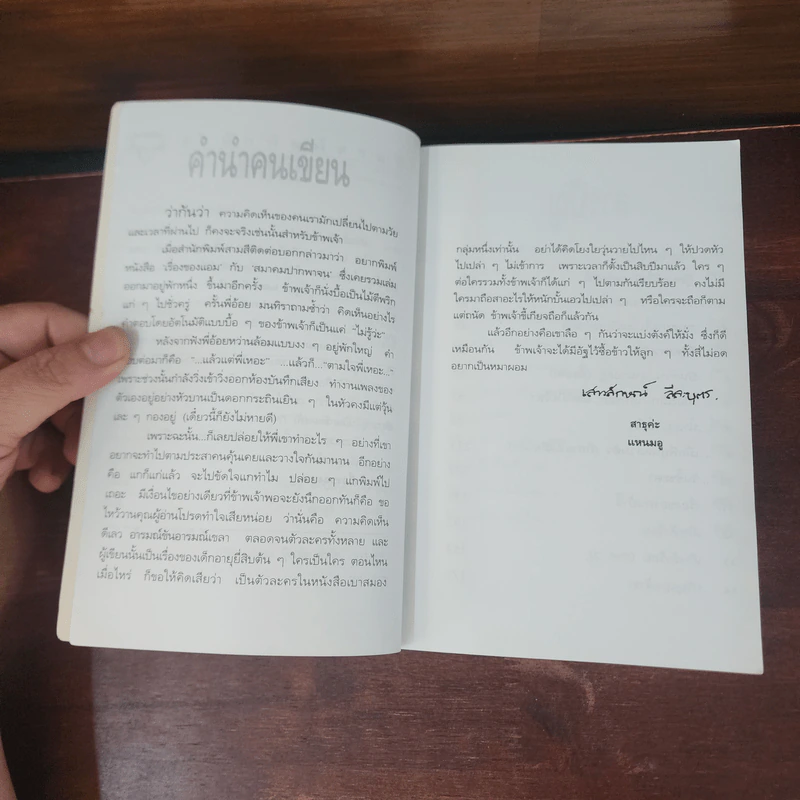 คำนำคนเขียน
ว่ากันว่า ความคิดเห็นของคนเรามักเปลี่ยนไปตามวัย
และเวลาที่ผ่านไป ก็คงจะจริงเช่นนั้นสำหรับข้าพเจ้า
เมื่อสำนักพิมพ์สามสีติดต่อบอกกล่าวมาว่า อยากพิมพ์
หนังสือ 'เรื่องของแอม' กับ 'สมาคมปากพาจน' ซึ่งเคยรวมเล่ม
ออกมาอยู่พักหนึ่ง ขึ้นมาอีกครั้ง ข้าพเจ้าก็นั่งบื้อเป็นไม้ตีพริก
แก่ ๆ ไปชั่วครู่ ครั้นพี่อ้อย มนทิราถามซ้ำว่า คิดเห็นอย่างไร
คำตอบโดยอัตโนมัติแบบบื้อ ๆ ของข้าพเจ้าก็เป็นแค่ "ไม่รู้ว่ะ"
หลังจากฟังพี่อ้อยหว่านล้อมแบบงง ๆ อยู่พักใหญ่ คำ
ตอบต่อมาก็คือ "...แล้วแต่พี่เหอะ" ...แล้วก็..."ตามใจพี่เหอะ..."
เพราะช่วงนั้นกำลังวิ่งเข้าวิ่งออกห้องบันทึกเสียง ทำงานเพลงของ
ตัวเองอยู่อย่างหัวบานเป็นดอกกระถินเยิน ๆ ในหัวคงมีแต่วุ้น
และ ๆ กองอยู่ (เดี๋ยวนี้ก็ยังไม่หายดี)
เพราะฉะนั้น...ก็เลยปล่อยให้พี่เขาทำอะไร ๆ อย่างที่เขา
อยากจะทำไปตามประสาคนคุ้นเคยและวางใจกันมานาน อีกอย่าง
คือ แกก็แก่แล้ว จะไปขัดใจแกทำไม ปล่อย ๆ แกพิมพ์ไป
เถอะ มีเงื่อนไขอย่างเดียวที่ข้าพเจ้าพอจะยังนึกออกทันก็คือ ขอ
ไหว้วานคุณผู้อ่านโปรดทำใจเสียหน่อย ว่านั่นคือ ความคิดเห็น
ดีเลว อารมณ์ขันอารมณ์เขลา ตลอดจนตัวละครทั้งหลาย และ
ผู้เขียนนั้นเป็นเรื่องของเด็กอายุยี่สิบต้น ๆ ใครเป็นใคร ตอนไหน
เมื่อไหร่ ก็ขอให้คิดเสียว่า เป็นตัวละครในหนังสือเบาสมอง
กลุ่มหนึ่งเท่านั้น อย่าได้คิดโยงใยวุ่นวายไปไหน ๆ ให้ปวดหัว
ไปเปล่า ๆ ไม่เข้าการ เพราะเวลาก็ตั้งเป็นสิบปีมาแล้ว ใคร ๆ
ต่อใครรวมทั้งข้าพเจ้าก็ได้แก่ ๆ ไปตามกันเรียบร้อย คงไม่มี
ใครมาถือสาอะไรให้หนักบั้นเอวไปเปล่า ๆ หรือใครจะถือก็ตาม
แต่ถนัด ข้าพเจ้าขี้เกียจถือก็แล้วกัน
แล้วอีกอย่างคือเขาลือ ๆ กันว่าจะแบ่งตังค์ให้มั่ง ซึ่งก็ดี
เหมือนกัน ข้าพเจ้าจะได้มีอัฐไว้ซื้อข้าวให้ลูก ๆ ทั้งสี่ไม่อด
อยากเป็นหมาผอม
เสาวลักษณ์ ลีละบุตร.
สาธุค่ะ
แหนมอู